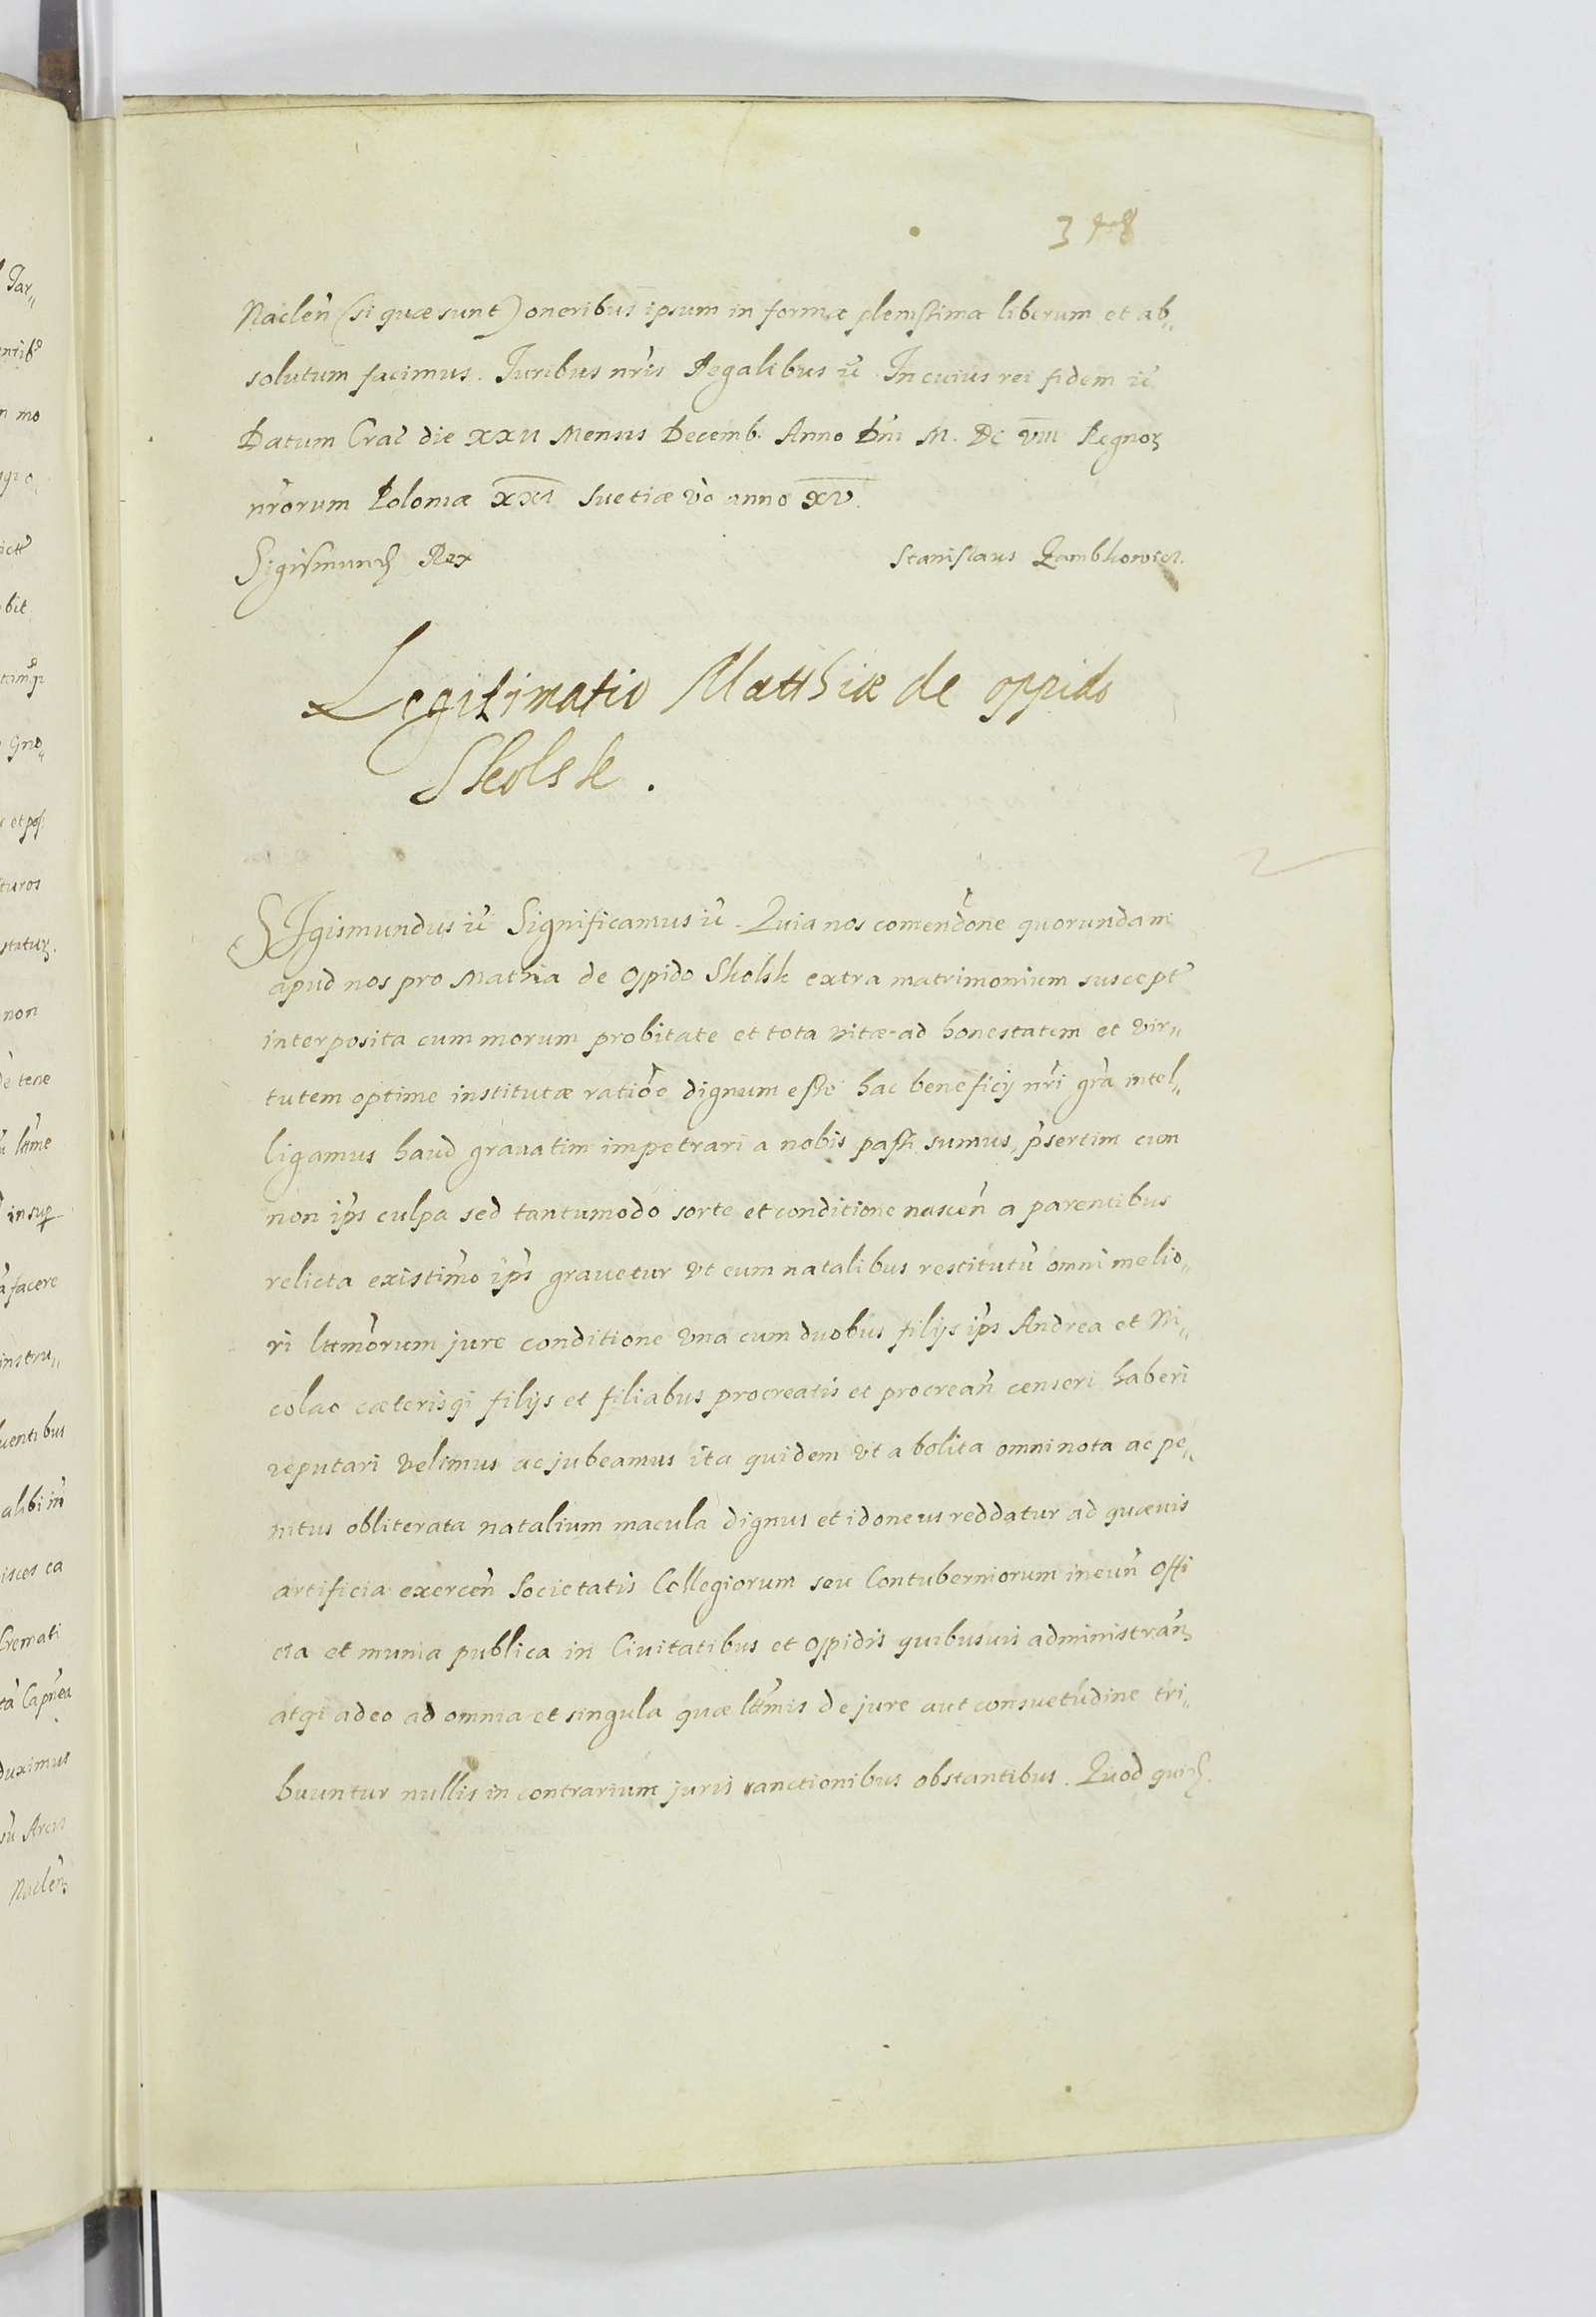 Naclen̄ (si quæ sunt) oneribus ipsum in forma plenissima liberum et ab„
solutum facimus. Juribus nr̄is Regalibus ic̄. In cuius rei fidem ic̄
Datum Crac̄ die XXII Mensis Decemb. Anno Dn̄i M. DC VIII Regnoꝝ
nr̄orum Poloniæ XXI Suetiæ v̄o anno XV.
Sigismundꝰ Rex Stanislaus
Legitimatio Matthiæ de oppido
Skolsk.
SIgismundus ic̄ Significamus ic̄. Quia nos comend̄one quorundam
apud nos pro Mathia de Oppido Skolsk extra matrimonium suscept̄
interposita cum morum probitate et tota vitæ ad honestatem et vir„
tutem optime institutæ ratiōe dignum esse hac beneficij nr̄i gr̄a intel„
ligamus haud grauatim impetrari a nobis passi sumus, p̄sertim cum
non ip̄s culpa sed tantumodo sorte et conditione nascen̄ a parentibus
relicta existim̄o ip̄s grauetur vt eum natalibus restitutū omni melio„
ri ltt̄morum jure conditione vna cum duobus filijs ip̄s Andrea et Ni„
colao cæterisqꝫ filijs et filiabus procreatis et procrean̄ censeri haberi
reputari velimus ac jubeamus ita quidem vt abolita omni nota ac pe„
nitus obliterata natalium macula dignus et idoneus reddatur ad quævis
artificia exercen̄ Societatis Collegiorum seu Contuberniorum ineun̄ Offi
cia et munia publica in Ciuitatibus et Oppidis quibusuis administran̄
atqꝫ adeo ad omnia et singula quæ ltt̄mis de jure aut consuetudine tri„
buuntur nullis in contrarium juris sanctionibus obstantibus. Quod quidꝫ.